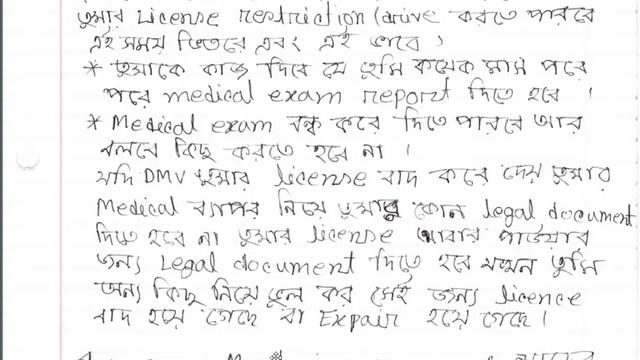 তুমার License restriction (drive করতে পারবে
এই সময় ভিতরে এবং এই ভাবে)
* তুমাকে কাজ দিবে যে তুমি কয়েক মাস পরে
পরে medical exam report দিতে হবে ।
* Medical exam বন্ধ করে দিতে পারবে আর
বলবে কিছু করতে হবে না ।
যদি DMV তুমার license বাদ করে দেয় তুমার
Medical ব্যাপার নিয়ে তুমার কোন legal document
দিতে হবে না তুমার license আবার পাওয়ার
জন্য Legal document দিতে হবে যখন তুমি
অন্য কিছু নিয়ে ভুল কর সেই জন্য licence
বাদ হয়ে গেছে বা Expair হয়ে গেছে ।